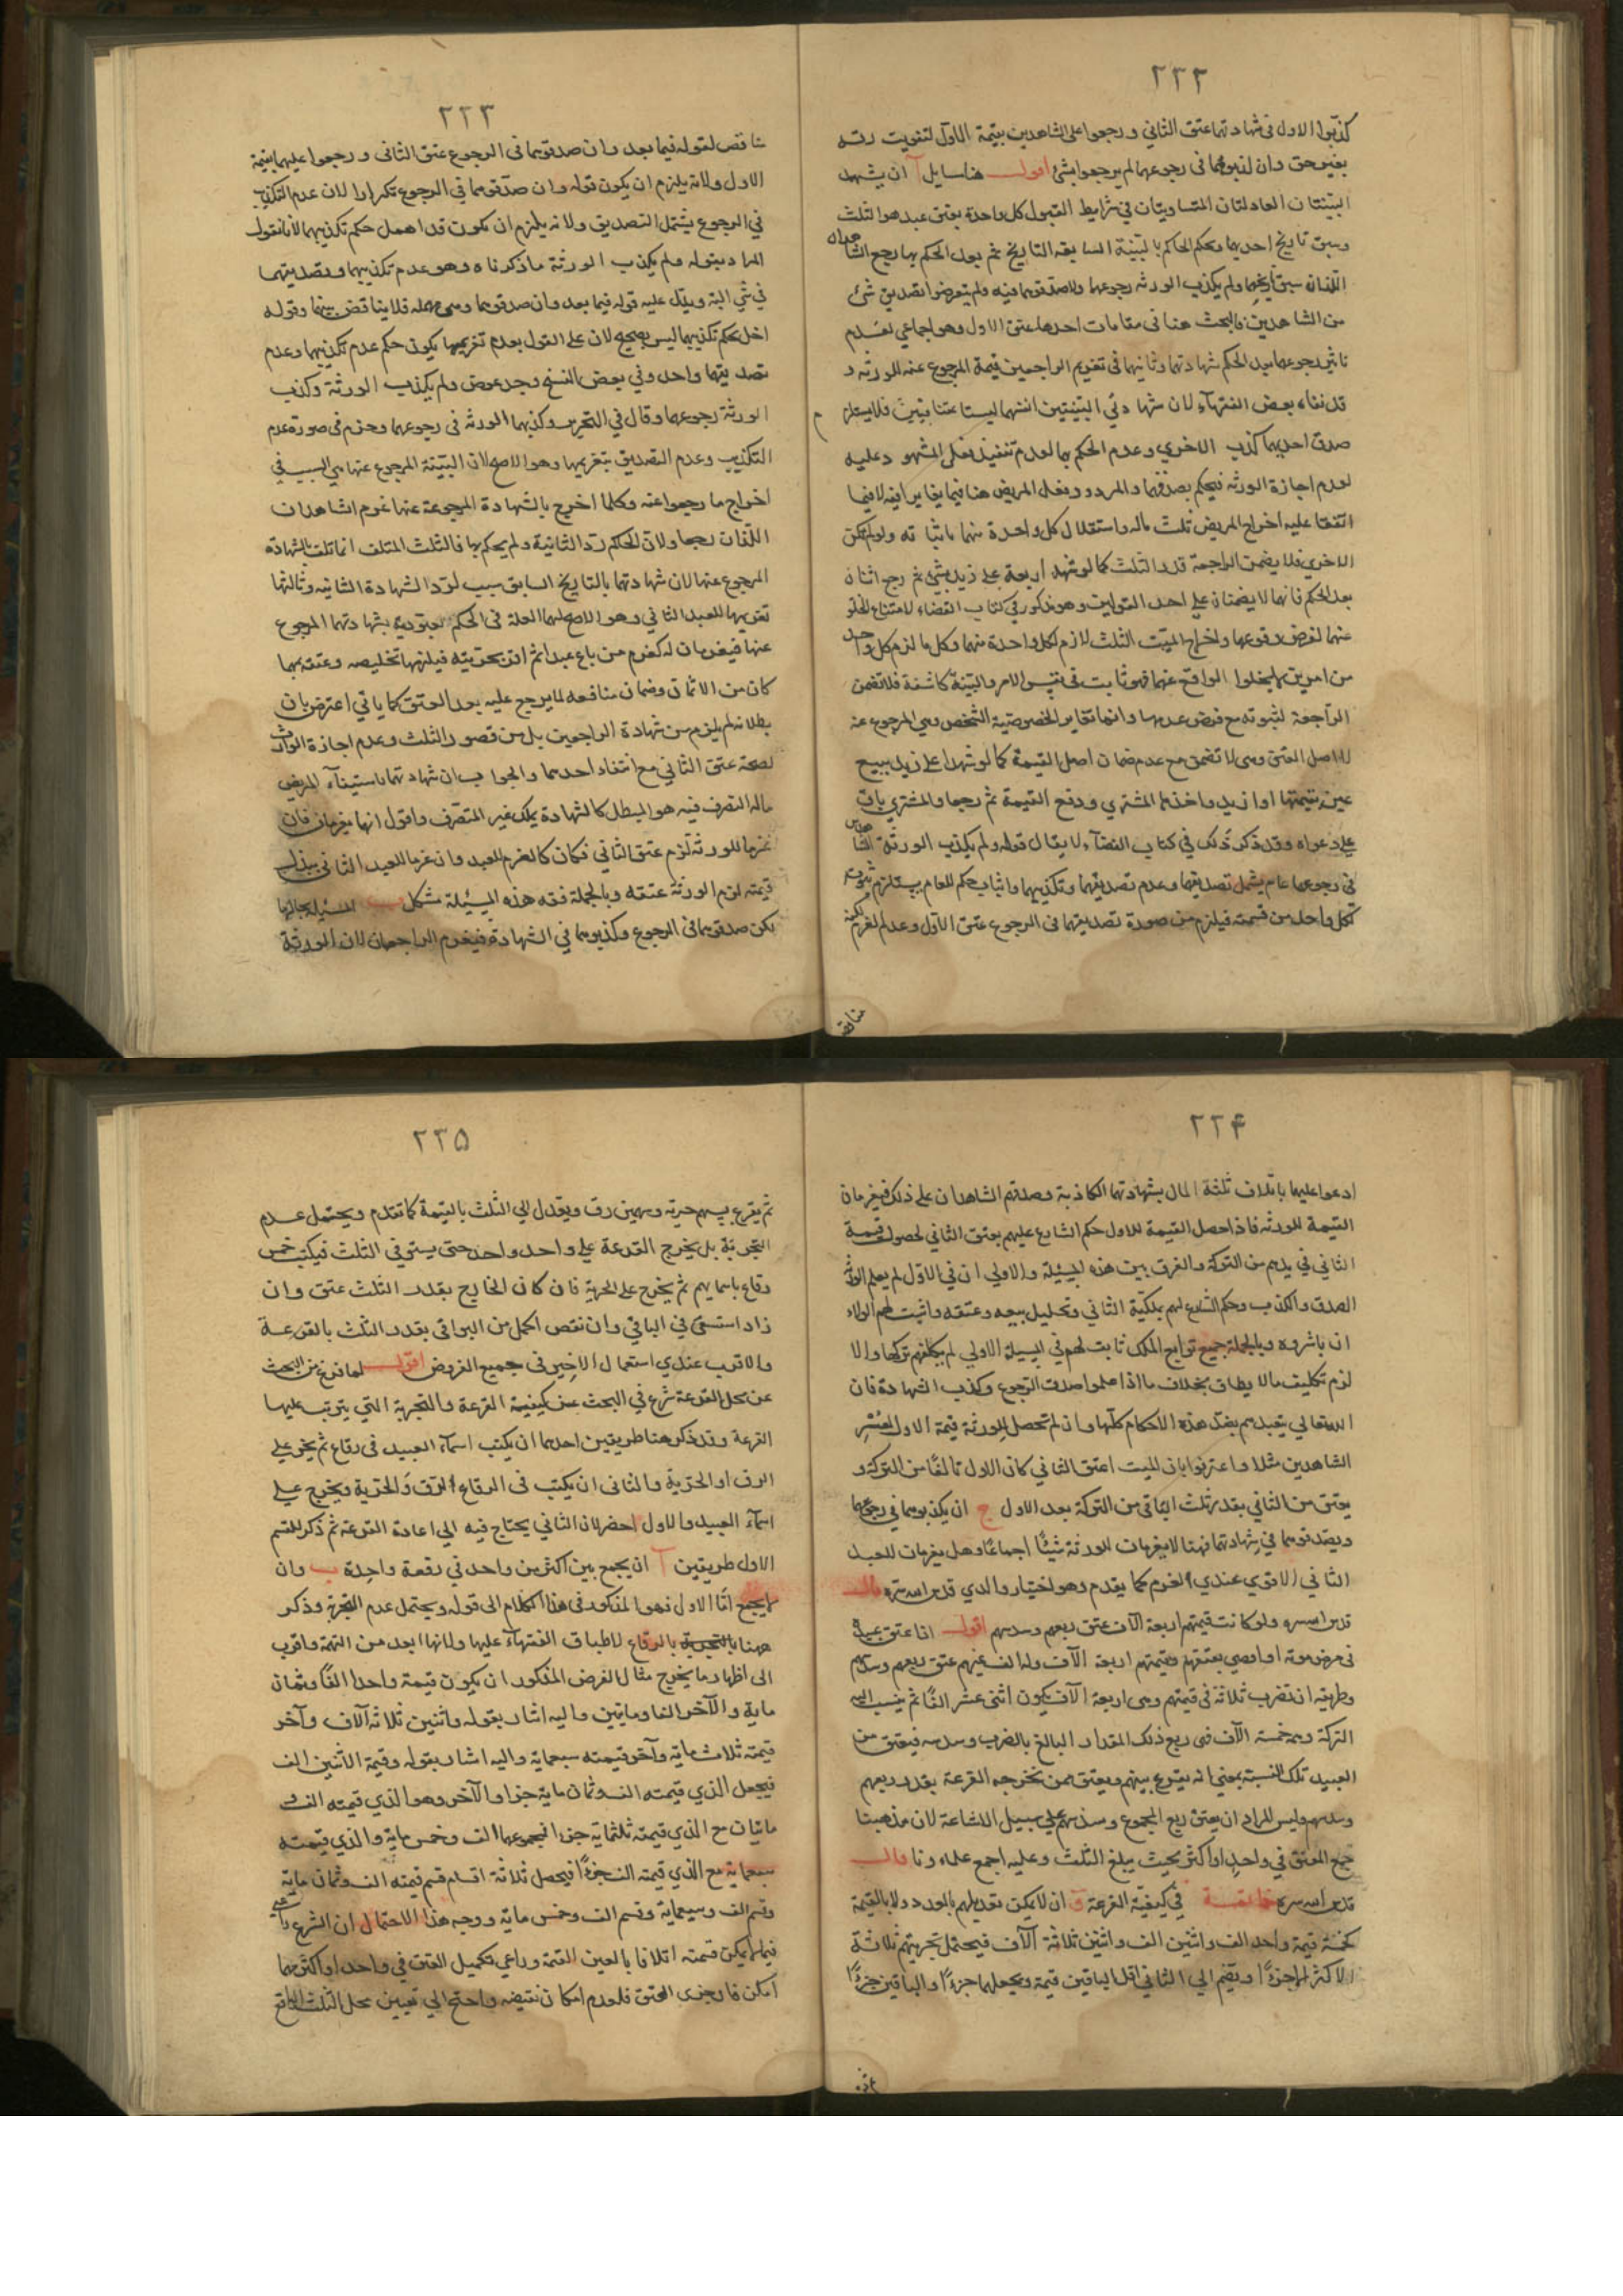 ٢٣٢
كذّبوا الاول فى شهادتهما عتق الثاني ورجعوا على الشاهدين بقيمة الاوّل لتفويت رقه
بغير حق وان كذبوهما فى رجوعهما لم يرجعوا بشئ اقول هنا مسايل آ ان يشهد
البيّنتان العادلتان المتساويتان في شرايط القبول كل واحدة بعتق عبد هو الثلث
وسبق تاريخ احديهما وحكم الحاكم بالبيّنة السابقة التاريخ ثم بعد الحكم بها رجع الشاهدان
اللذان سبق تاريخهما ولم يكذب الورثه رجوعهما ولا صدقوهما فيه ولم يتعرضوا لتصديق شئ
من الشاهدين فالبحث هنا فى مقامات احدها عتق الاول وهو اجماعي لعدم
تاثير رجوعهما بعد الحكم بشهادتهما وثانيها فى تغريم الراجعين قيمة المرجوع عنه للورثه و
قد نفاه بعض الفقهآء لان شهادتي البيّنتين انفسهما ليستا متنافيتين فلا يستلزم
صدق احديهما كذب الاخرى وعدم الحكم بها لعدم تنفيذ فعل المشهود عليه
لعدم اجازة الورثه فيحكم بصدقهما والمردود فعل المريض هنا فيما يغاير افيه لا فيما
اتفقا عليه اخراج المريض ثلث ماله واستقلال كل واحدة منهما باثباته ولو لم تكن
الاخرى فلا يضمن الراجعة قدر الثلث كما لو شهد اربعة على زيد بشئ ثم رجع اثنان
بعد الحكم فانهما لا يضمنان على احد القولين وهو مذكور في كتاب القضاء لامتناع الخلو
عنهما لفرض وقوعهما واخراج الميّت الثلث لازم لكل واحدة منهما وكل ما لزم كل واحد
من امرين لم يخلوا الواقع عنهما فهو ثابت فى نفس الامر والبيّنة كاشفة فلا تضمن
الراجعة لثبوته مع فرض عدمها وانما تغاير الخصوصية الشخص وهي المرجوع عنه
لا اصل العتق وهى لا تضمن مع عدم ضمان اصل القيمة كما لو شهدا على زيد ببيع
عين بقيمتها او ازيد واخذها المشتري ودفع القيمة ثم رجعا والمشتري باق
على دعواه وقد ذكر ذلك في كتاب القضآء لا يقال قوله ولم يكذب الورثة الشاهدين
فى رجوعهما عام يشمل تصديقهما وعدم تصديقهما وتكذيبهما واثبات حكم للعام يستلزم ثبوته
لكل واحد من قسمته فيلزم من صورة تصديقهما فى الرجوع عتق الاوّل وعدم الغرم لكنه
مناقض
٢٣٣
مناقض لقوله فيما بعد وان صدقوهما فى الرجوع عتق الثانى ورجعوا عليهما بقيمة
الاول ولانه يلزم ان يكون قوله وان صدّقوهما في الرجوع تكرارا لان عدم التكذيب
في الرجوع يشتمل التصديق ولانه يلزم ان يكون قد اهمل حكم تكذيبهما لانا نقول
المراد بقوله ولم يكذب الورثة ما ذكرناه وهو عدم تكذيبهما وتصديقهما
في شئ البتة ويدل عليه قوله فيما بعد وان صدقوهما وهى مهملة فلا يناقض بينهما وقوله
اخل بحكم تكذيبهما ليس بصحيح لان على القول بعدم تغريمهما يكون حكم عدم تكذيبهما وعدم
تصديقهما واحد وفي بعض النسخ وجد عوض ولم يكذب الورثة وكذب
الورثة رجوعهما وقال في التحرير وكذبهما الورثه فى رجوعهما وجزم فى صورة عدم
التكذيب وعدم التصديق بتغريمهما وهو الاصح لان البيّنة المرجوع عنها هي السبب في
اخراج ما رجعوا عنه وكلما اخرج بالشهادة المرجوعة عنها غرم الشاهدان
اللذان رجعا ولان الحاكم ردّ الثانية ولم يحكم بها فالثلث المتلف انما تلف بالشهادة
المرجوع عنها لان شهادتهما بالتاريخ السابق سبب لردّ الشهادة الثانيه وثالثها
تغريمهما للعبد الثاني وهو الاصح لهما العلة فى الحكم بعبوديته بشهادتهما المرجوع
عنها فيغرمان له كغرم من باع عبدا ثم اقر بحريته فيلزمه تخليصه وعتقه بمهما
كان من الاثمان وضمان منافعه لما يرجع عليه بعد العتق كما ياتي اعترض بان
بطلانه لم يلزم من شهادة الراجعين بل من قصور الثلث وعدم اجازة الوارث
لصحة عتق الثاني مع انتفاء احدهما والجواب ان شهادتهما باستيفاء المريض
ماله التصرف فيه هو المبطل كالشهادة بملك غير المتصّرف واقول انهما يغرمان فان
غرما للورثة لزم عتق الثاني فكان كالغرم للعبد وان غرما للعبد الثانى ببذل
قيمته لزم الورثة عتقه وبالجملة فقه هذه المسئلة مشكل ب المسئلة بحالها
لكن صدقوهما فى الرجوع وكذبوهما في الشهادة فيغرم الراجعان لان الورثة
٢٣۴
ادعوا عليهما باتلاف ثلثة المال بشهادتهما الكاذبة وصدقهم الشاهدان على ذلك فيغرمان
القيمة للورثه فاذا حصل القيمة للاول حكم الشارع عليهم بعتق الثاني لحصول قيمة
الثاني في يدهم من التركة والفرق بين هذه المسئلة والاولى ان في الاوّل لم يعلم الورثه
الصدق والكذب وحكم الشارع لهم بملكيّة الثاني وتحليل بيعه وعتقه واثبت لهم الولاء
ان باشروه وبالجملة جميع توابع الملك ثابت لهم في المسئلة الاولى لم يكلفهم تركها والا
لزم تكليف مالا يطاق بخلاف ما اذا علموا صدق الرجوع وكذب الشهادة فان
الله تعالى يتعبدهم بضدّ هذه الاحكام كلّها وان لم تحصل للورثة قيمة الاول لعُسْر
الشاهدين مثلا واعترفوا بان الميت اعتق الثاني كان الاول تالفًا من التركة و
يعتق من الثاني بقدر ثلث الباقى من التركة بعد الاول ج ان يكذبوهما في رجوعهما
ويصدقوهما في شهادتهما فهنا لا يغرمان للورثة شيئًا اجماعًا وهل يغرمان للعبد
الثاني الاقوي عندي الغرم كما يقدم وهو اختيار والدي قدس الله سره قال
قدس الله سره ولو كانت قيمتهم اربعة آلاف عتق ربعهم وسدسهم اقول اذا عتق عبيده
فى مرض موته او اوصى بعتقهم وقيمتهم اربعة الآف وله الف غيرهم عتق ربعهم وسدسهم
وطريقه ان تضرب ثلاثة فى قيمتهم وهى اربعة الآف يكون اثنى عشر الفًا ثم ينسب اليه
التركة وهى خمسة الآف فهى ربع ذلك المقدار البالغ بالضرب وسدسه فيعتق من
العبيد تلك النسبة بمعني انه يقرع بينهم ويعتق ممن تخرجه القرعة بقدر ربعهم
وسدسهم وليس المراد ان يعتق ربع المجموع وسدسهم على سبيل الاشاعة لان مذهبنا
جمع العتق في واحدٍ او اكثر بحيث يبلغ الثلث وعليه اجمع علماءونا قال
قدس الله سره خاتمة في كيفيّة القرعة ان لا يمكن تعديلهم بالعدد ولا بالقيمة
كخمسة قيمة واحد الف واثنين الف واثنين ثلاثة آلاف فيحتمل تجزيتهم ثلاثة
الاكثر لها جزءًا ويضم الى الثاني اقل الباقين قيمة ويجعلهما جزءًا والباقين جزءًا
ثم
٢٣۵
ثم يقرع بسهم حرية وسهمين رق ويعدل الي الثلث بالقيمة كما تقدم ويحتمل عدم
التجزية بل يخرج القرعة على واحد واحد حتى يستوفي الثلث فيكتب خمس
رقاع باسمائهم ثم يخرج على الحرية فان كان الخارج بقدر الثلث عتق وان
زاد استسعى في الباقي وان نقص اكمل من البواقى بقدر الثلث بالقرعة
والاقرب عندي استعمال الاخير فى جميع الفروض اقول لما فرغ من البحث
عن محل القرعة شرع في البحث عن كيفية القرعة والتجزية التي يترتب عليها
القرعة وقد ذكر هنا طريقين احدهما ان يكتب اسمآء العبيد فى رقاع ثم يخرج على
الرق او الحرّية والثانى ان يكتب فى الرقاع الرّق والحرّية ويخرج على
اسمآء العبيد والاول احضر لان الثاني يحتاج فيه الى اعادة القرعة ثم ذكر للقسم
الاول طريقين آ ان يجمع بين اكثر من واحد في رقعة واحدة ب وان
لا يجمع امّا الاول فهو المذكور فى هذا الكلام الى قوله ويحتمل عدم التجزية وذكر
ههنا بالتجزية بالرقاع لاطباق الفقهآء عليها ولانها ابعد من التهمة واقرب
الى اظهار ما يخرج مثال الفرض المذكور ان يكون قيمة واحد الفًا وثمان
ماية والآخر الفا ومايتين واليه اشار بقوله واثنين ثلاثة آلاف وآخر
قيمته ثلاث ماية وآخر قيمته سبعماية واليه اشار بقوله وقيمة الاثنين الف
فيجعل الذي قيمته الف وثمان ماية جزءا والآخر وهو الذي قيمته الف و
مائتان مع الذي قيمته ثلثماية جزءا فمجموعهما الف وخمس ماية والذي قيمته
سبعماية مع الذي قيمته الف جزءًا فيحصل ثلاثة اقسام قسم قيمته الف وثمان ماية
وقسم الف وسبعماية وقسم الف وخمس ماية ووجه هذا الاحتمال ان الشرع راعى
فيما يمكن قسمته اتلافا بالعين القسمة وراعي تكميل العتق في واحد او اكثر مهما
امكن فان جزى العتق فلعدم امكان نقيضه واحتج الى تعيين محل الثلث الواقع